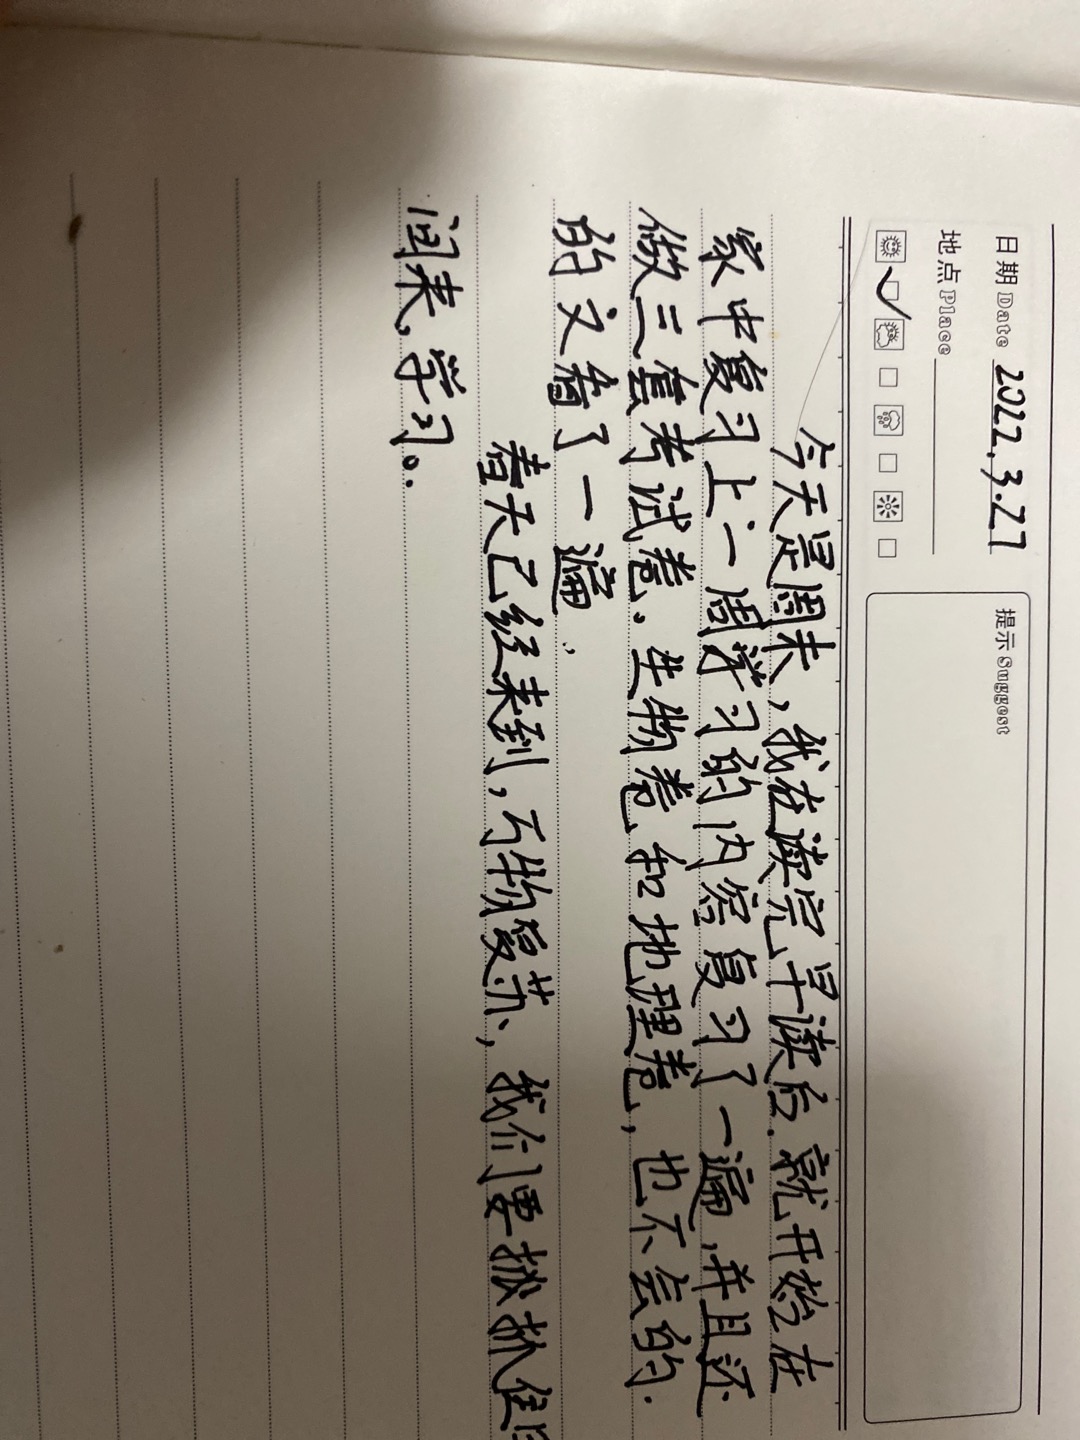 日期 Date 2022.3.27
地点 Place
提示 Suggest
今天是周末,我在读完早读后.就开始在
家中复习上一周学习的内容复习了一遍,并且还
做三套考试卷.生物卷和地理卷,也不会的.
的文看了一遍,
春天已经来到,万物复苏,我们要抓住
间来,学习。